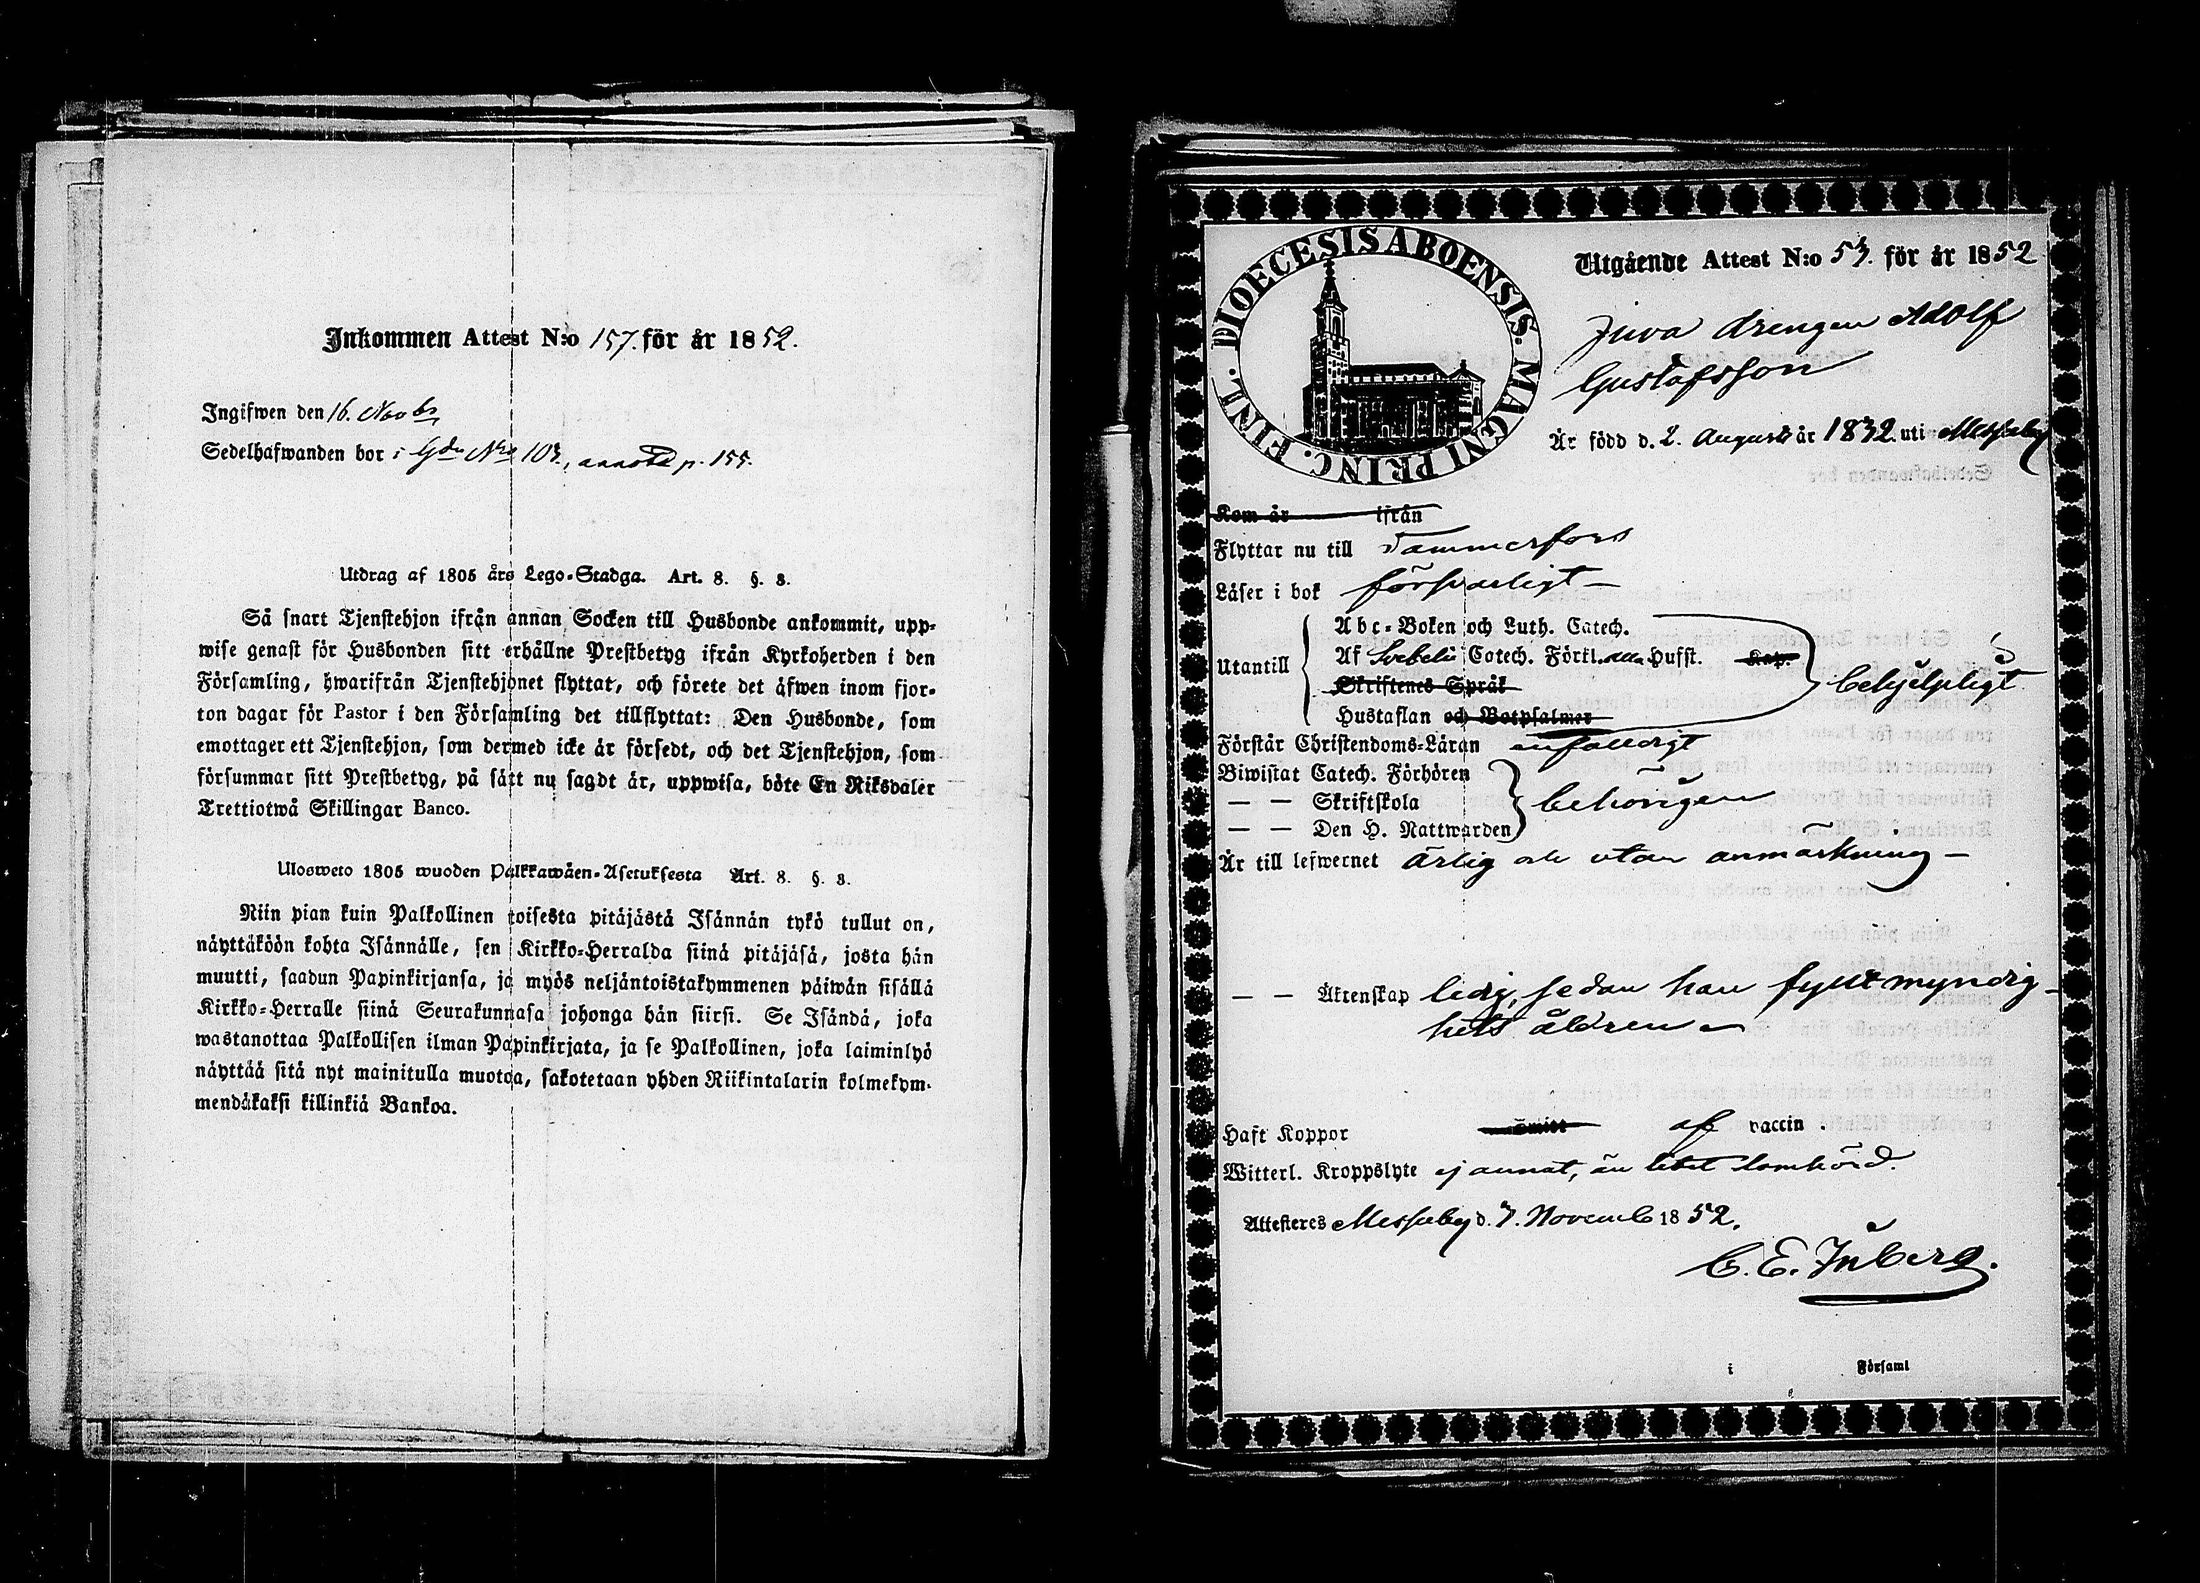 Inkommen Attest N:o 157. för år 1852.
Ingifwen den 16. Novbr
Sedelhafwanden bor i Gdn Nro 103, annoto p. 155.
Utdrag af 1805 års Lego-Stadga. Art. 8. §. 3.
Så snart Tjenstehjon ifrån annan Socken till Husbonde ankommit, upp-
wise genast för Husbonden sitt erhållne Prestbetyg ifrån Kyrkoherden i den
Församling, hwarifrån Tjenstehjonet flyttat, och förete det äfwen inom fjor-
ton dagar för Pastor i den Församling det tillflyttat: Den Husbonde, som
emottager ett Tjenstehjon, som dermed icke är försedt, och det Tjenstehjon, som
försummar sitt Prestbetyg, på sätt nu sagdt är, uppwisa, böte En Riksdaler
Trettiotwå Skillingar Banco.
Ulosweto 1805 wuoden Palkkawäen-Asetuksesta Art. 8. §. 3.
Niin pian kuin Palkollinen toisesta pitäjästä Isännän tykö tullut on,
näyttäköön kohta Isännälle, sen Kirkko-Herralda siinä pitäjäsä, josta hän
muutti, saadun Papinkirjansa, ja myös neljäntoistakymmenen päiwän sisällä
Kirkko-Herralle siinä Seurakunnasa johonga hän siirsi. Se Isändä, joka
wastanottaa Palkollisen ilman Papinkirjata, ja se Palkollinen, joka laiminlyö
näyttää sitä nyt mainitulla muotoa, sakotetaan yhden Riikintalarin kolmekym-
mendäkaksi killinkiä Bankoa.
DIOECESIS ABOENSIS. MAGNI PRINC. FINL.
Utgående Attest N:o 53. för år 1852
Juva drengen Adolf
Gustafsson
Är född d. 2. Augusti år 1832 uti Messuby
Kom år ifrån
Flyttar nu till Tammerfors
Läser i bok försvarligt
Utantill
Abc-Boken och Luth. Catech.
Af Svebelii Catech. Förkl. Husst. Kap.
Skriftenes Språk
Hustaflan och Botpsalmer
behjelpligt
Förstår Christendoms-Läran enfaldigt
Biwistat Catech. Förhören
— — Skriftskola
— — Den H. Nattwarden
behörigen
Är till lefwernet ärlig och utan anmärkning
— — Äktenskap ledig, sedan han fyllt myndig-
hets åldren
Haft Koppor af vaccin.
Witterl. Kroppslyte ej annat, än litet lomhörd.
Attesteres Messuby d. 7. Novemb 1852.
C. E. Inberg.
i Församl